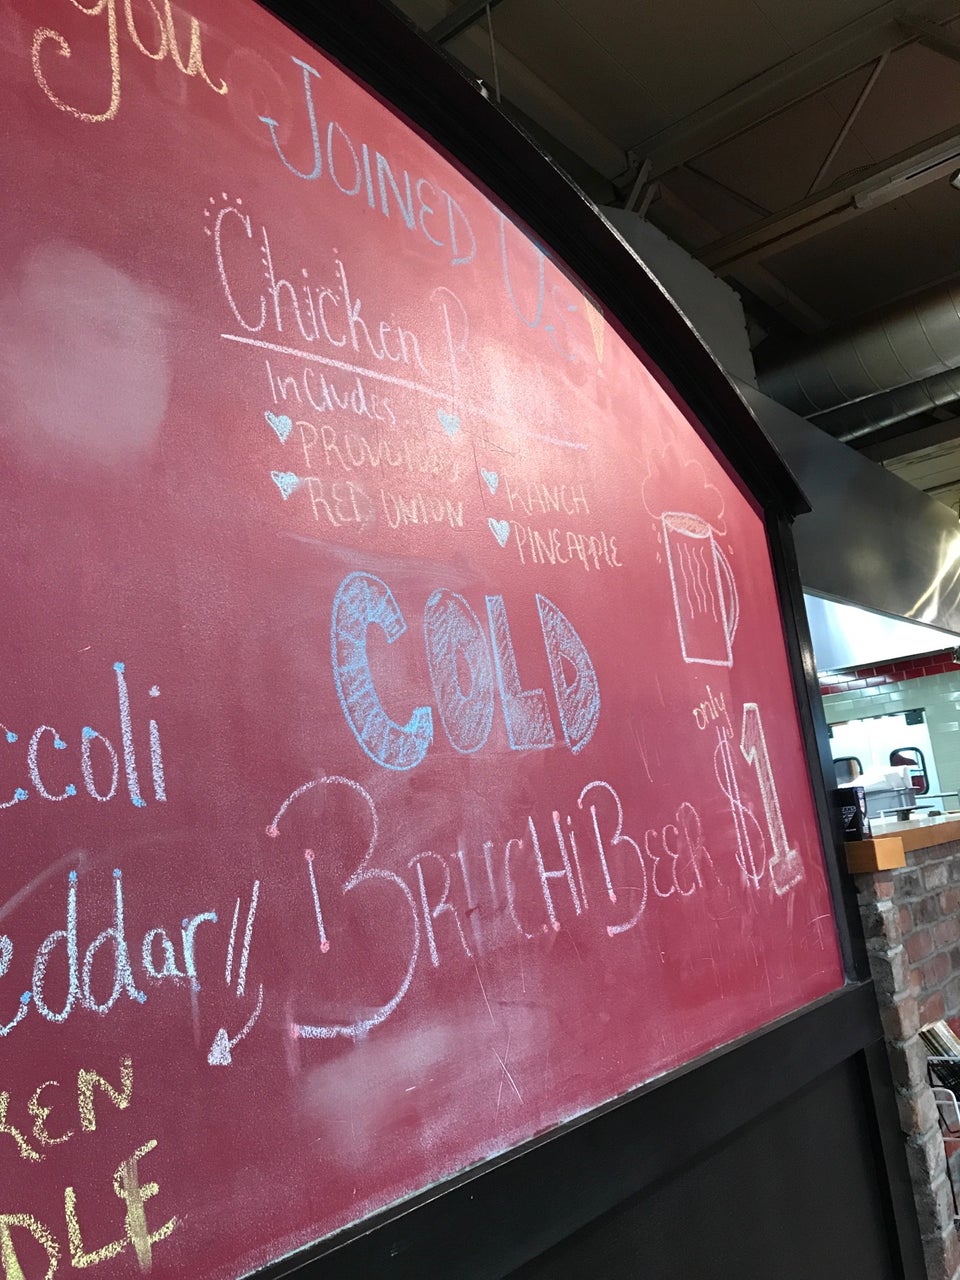 you
JOINED US
Chicken
Includes
RED UNION
RANCH
PINEAPPLE
COLD
BRUCHi BEER
only
$1
ccoli
eddar //
KEN
DLE